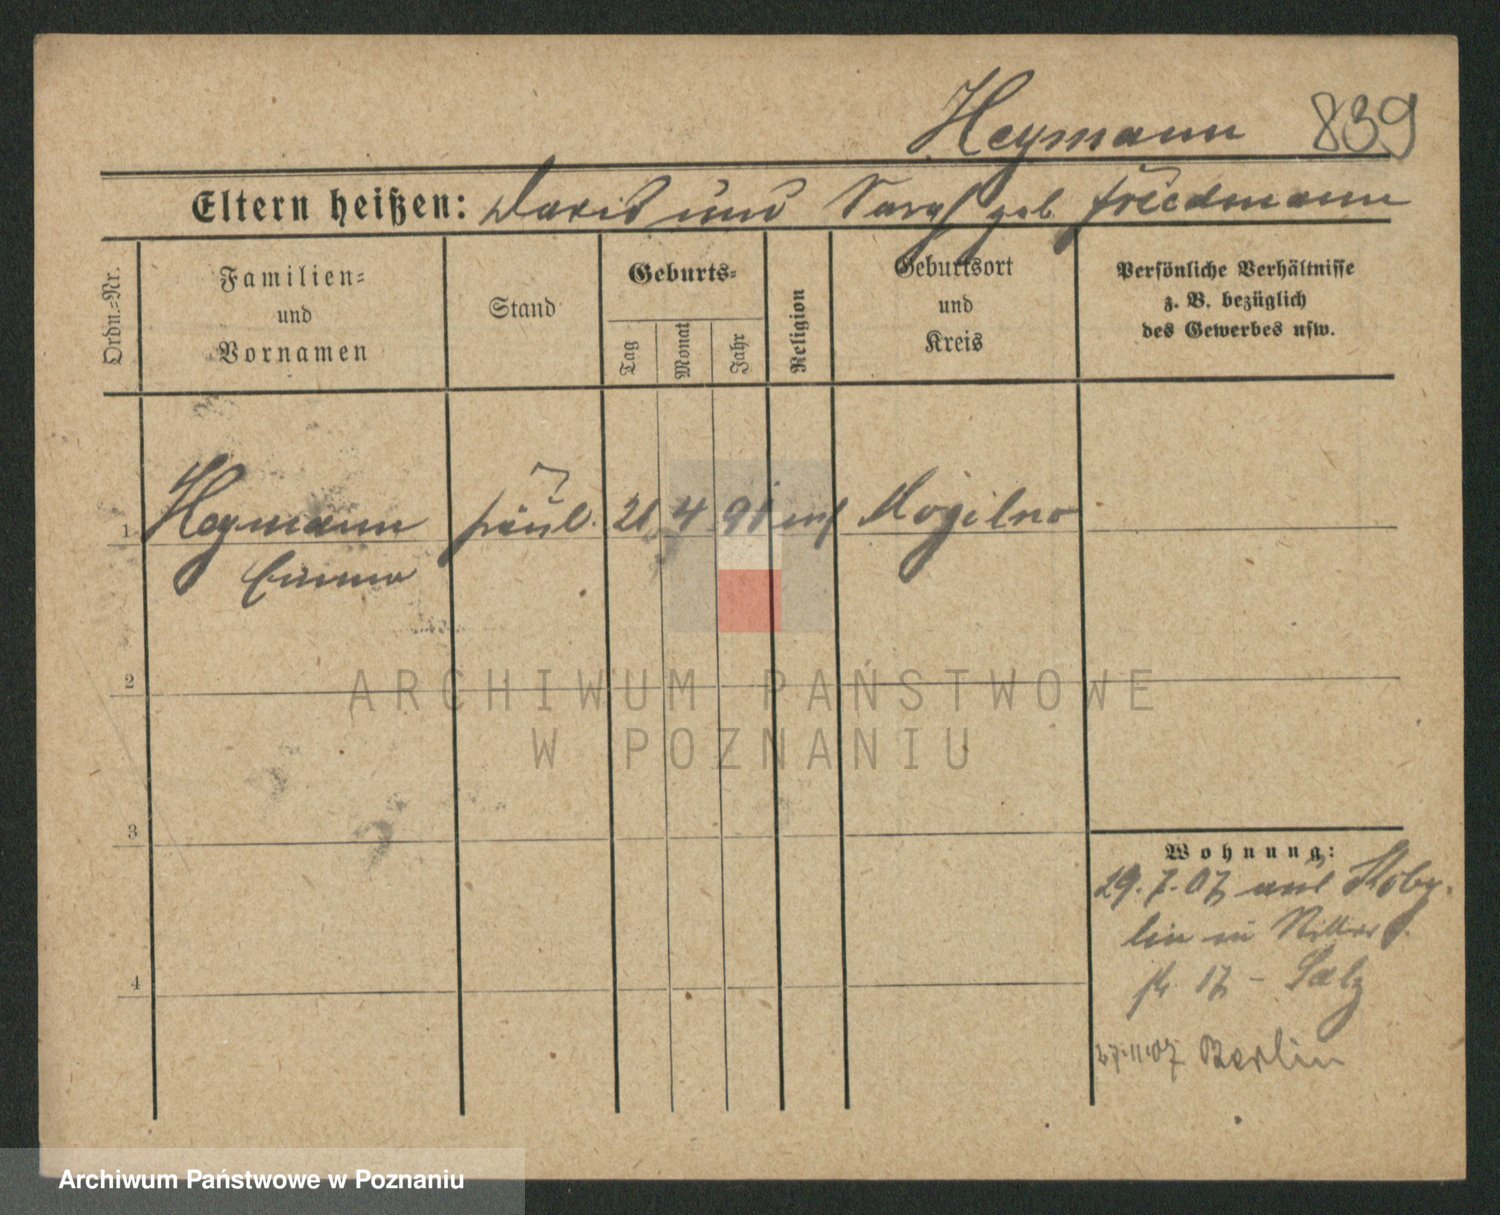 Heymann 839
Eltern heißen: David und Sara geb Friedmann
Ordn.=Nr.
Familien=
und
Vornamen
Stand
Geburts=
Tag
Monat
Jahr
Religion
Geburtsort
und
Kreis
Persönliche Verhältnisse
z. B. bezüglich
des Gewerbes usw.
1 Heymann fräul. 21 4 91 Mogilno
Emma
2
ARCHIWUM PAŃSTWOWE
W POZNANIU
3
4
Wohnung:
29.7.07 aus Koby-
lin in Ritter
str 17 -
27.11.07 Berlin
Archiwum Państwowe w Poznaniu